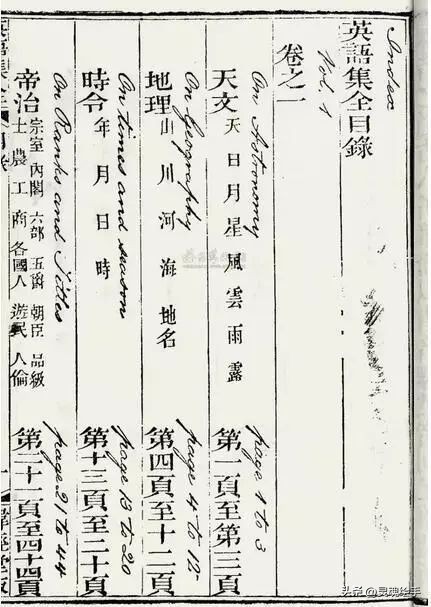 Index
英語集全目錄
Vol. 1
卷之一
On Astronomy page 1 to 3
天文 天日月星風雲雨露 第一頁至第三頁
On Geography page 4 to 12
地理 山川河海地名 第四頁至十二頁
On times and season page 13 to 20
時令 年月日時 第十三頁至二十頁
On Ranks and Titles page 21 to 44
帝治 宗室 內閣 六部 五爵 朝臣 品級
士農工商各國人 遊民 人倫 第二十一頁至四十四頁
头条 @灵魂绘手